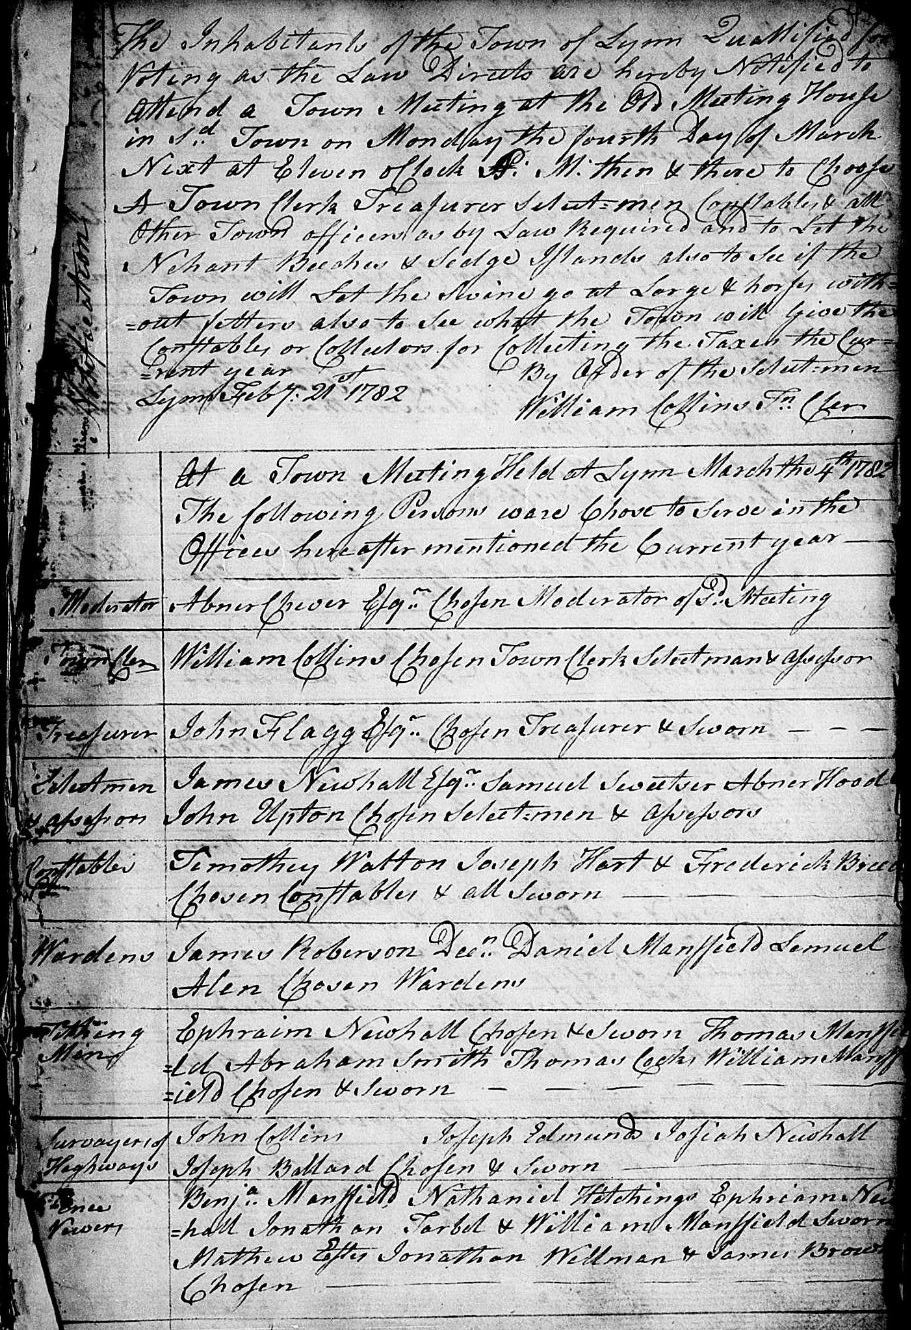 The Inhabitants of the Town of Lynn Quallified for
Voting as the Law Directs are hereby Notified to
Attend a Town Meeting at the Old Meeting House
in sd. Town on Monday the fourth Day of March
Next at Eleven oClock A: M: then & there to Choose
A Town Clerk Treasurer Select=men Constables & all
Other Town officers as by Law Required and to Let the
Nehant Beeches & Sedge Islands also to See if the
Town will Let the Swine go at Large & horses with=
=out fetters also to See what the Town will Give the
Constables or Collectors for Collecting the Taxes the Cur=
=rent year
By Order of the Select=men
Lynn Feby. 21st 1782
William Collins Tn Cler
Notification
At a Town Meeting Held at Lynn March the 4th 1782
The following Persons ware Chose to Serve in the
Offices hereafter mentioned the Current year
Moderator Abner Chever Esqr. Chosen Moderator of sd. Meeting
Town Cler William Collins Chosen Town Clerk Selectman & assessor
Treasurer John Flagg Esqr. Chosen Treasurer & Sworn
Selectmen James Newhall Esqr. Samuel Sweetser Abner Hood
& assessors John Upton Chosen Select=men & assessors
Constables Timothey Watton Joseph Hart & Frederick Breed
Chosen Constables & all Sworn
Wardens James Roberson Decn. Daniel Mansfield Lemuel
Alen Chosen Wardens
Tithing Ephraim Newhall Chosen & Sworn Thomas Mansfie
Men =ld Abraham Smith Thomas Cocks William Mansf
=ield Chosen & Sworn
Survayers of John Collins Joseph Edmunds Josiah Newhall
Heghways Joseph Ballard Chosen & Sworn
Fence Benja. Mansfield Nathaniel Hitchings Ephriam New
Viewers =hall Jonathan Tarbel & William Mansfield Sworn
Mathew Estes Jonathan Wellman & James Brown
Chosen